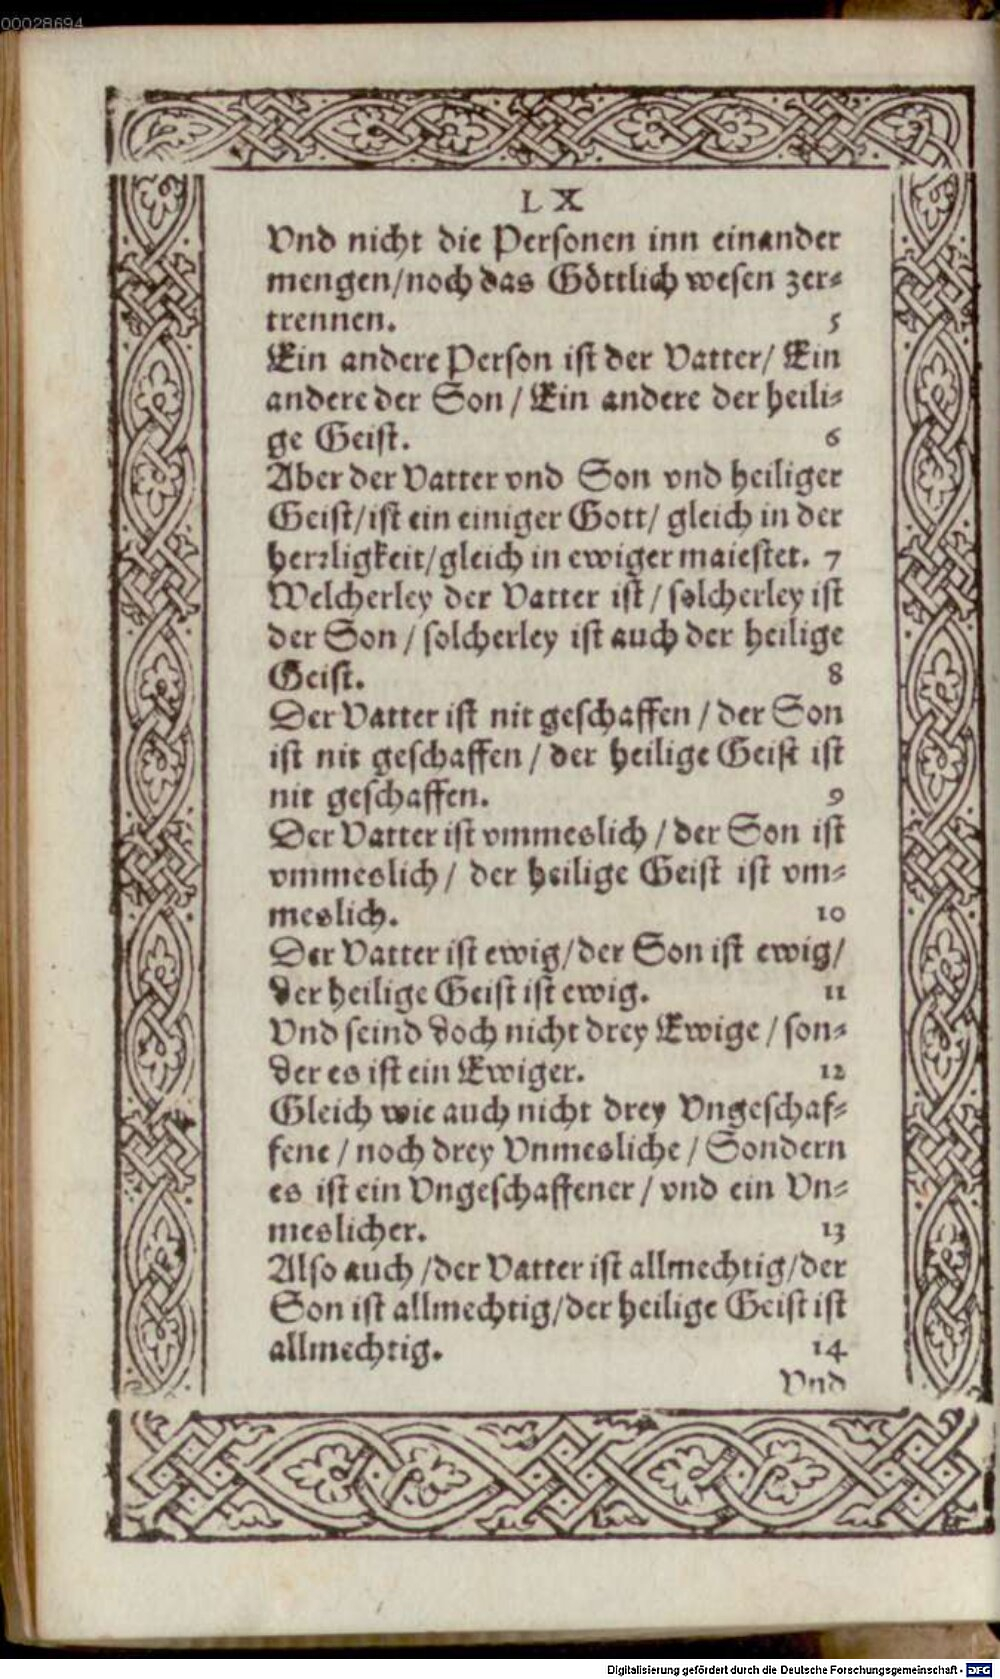 00028694
LX
Vnd nicht die Personen inn einander
mengen/noch das Göttlich wesen zer⸗
trennen. 5
Ein andere Person ist der Vatter/ Ein
andere der Son / Ein andere der heili⸗
ge Geist. 6
Aber der Vatter vnd Son vnd heiliger
Geist/ist ein einiger Gott/ gleich in der
herrligkeit/gleich in ewiger maiestet. 7
Welcherley der Vatter ist / solcherley ist
der Son / solcherley ist auch der heilige
Geist. 8
Der Vatter ist nit geschaffen / der Son
ist nit geschaffen / der heilige Geist ist
nit geschaffen. 9
Der Vatter ist vnmeslich / der Son ist
vnmeslich / der heilige Geist ist vn⸗
meslich. 10
Der Vatter ist ewig/der Son ist ewig/
der heilige Geist ist ewig. 11
Vnd seind doch nicht drey Ewige / son⸗
der es ist ein Ewiger. 12
Gleich wie auch nicht drey Vngeschaf⸗
fene / noch drey Vnmesliche / Sondern
es ist ein Vngeschaffener / vnd ein Vn⸗
meslicher. 13
Also auch /der Vatter ist allmechtig/der
Son ist allmechtig/der heilige Geist ist
allmechtig. 14
Vnd
Digitalisierung gefördert durch die Deutsche Forschungsgemeinschaft - DFG